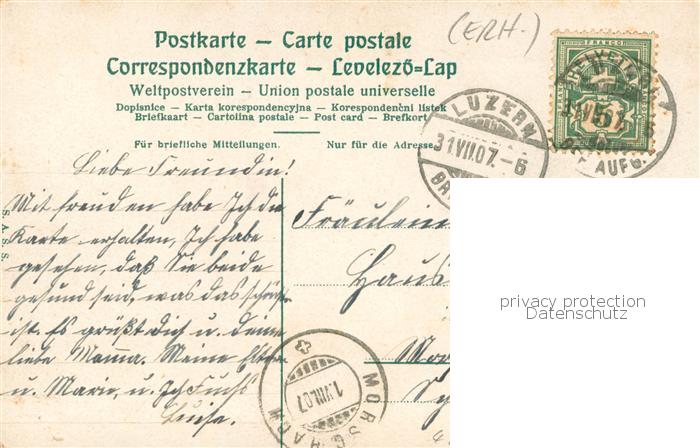 (ERH.)
Postkarte – Carte postale
Correspondenzkarte – Levelező-Lap
Weltpostverein – Union postale universelle
Dopisnice – Karta korespondencyjna – Korespondenční lístek
Briefkaart – Cartolina postale – Post card – Brefkort
Für briefliche Mitteilungen.
Nur für die Adresse
FRANCO
HELVETIA
5
LUZERN
31.VII.07.-6
BR
AUFG.
Liebe Freundin!
Mit freuden habe Ich die
Karte erhalten, Ich habe
gesehen, daß Sie beide
gesund seid, was das schönst
ist. Es grüßt Dich u. deine
liebe Mama. Meine Eltern
u. Marie, u. Ich
Luise.
S. A. S. S.
Fräulein
Haus
privacy protection
Datenschutz
MORSCHACH
1.VIII.07